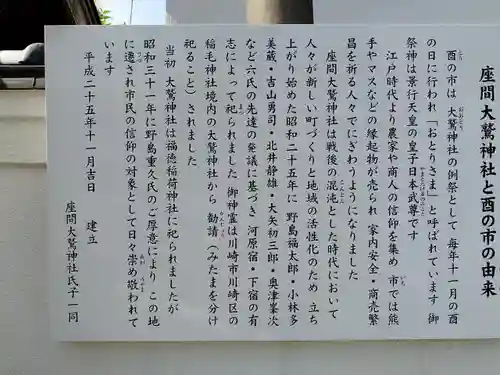 座間大鷲神社と酉の市の由来
酉の市は 大鷲神社の例祭として 毎年十一月の酉
の日に行われ「おとりさま」と呼ばれています 御
祭神は景行天皇の皇子日本武尊です
江戸時代より農家や商人の信仰を集め 市では熊
手やマスなどの縁起物が売られ 家内安全・商売繁
昌を祈る人々でにぎわうようになりました
座間大鷲神社は戦後の混沌とした時代において
人々が新しい町づくりと地域の活性化のため 立ち
上がり始めた昭和二十五年に 野島福太郎・小林多
美蔵・吉山勇司・北井静雄・大矢初三郎・奥津峯次
など六氏の先達の発議に基づき 河原宿・下宿の有
志によって祀られました 御神霊は川崎市川崎区の
稲毛神社境内の大鷲神社から 勧請(みたまを分け
祀ること)されました
当初 大鷲神社は福徳稲荷神社に祀られましたが
昭和三十一年に野島重久氏のご厚意により この地
に遷され市民の信仰の対象として日々崇め敬われて
います
平成二十五年十一月吉日 建立
座間大鷲神社氏子一同